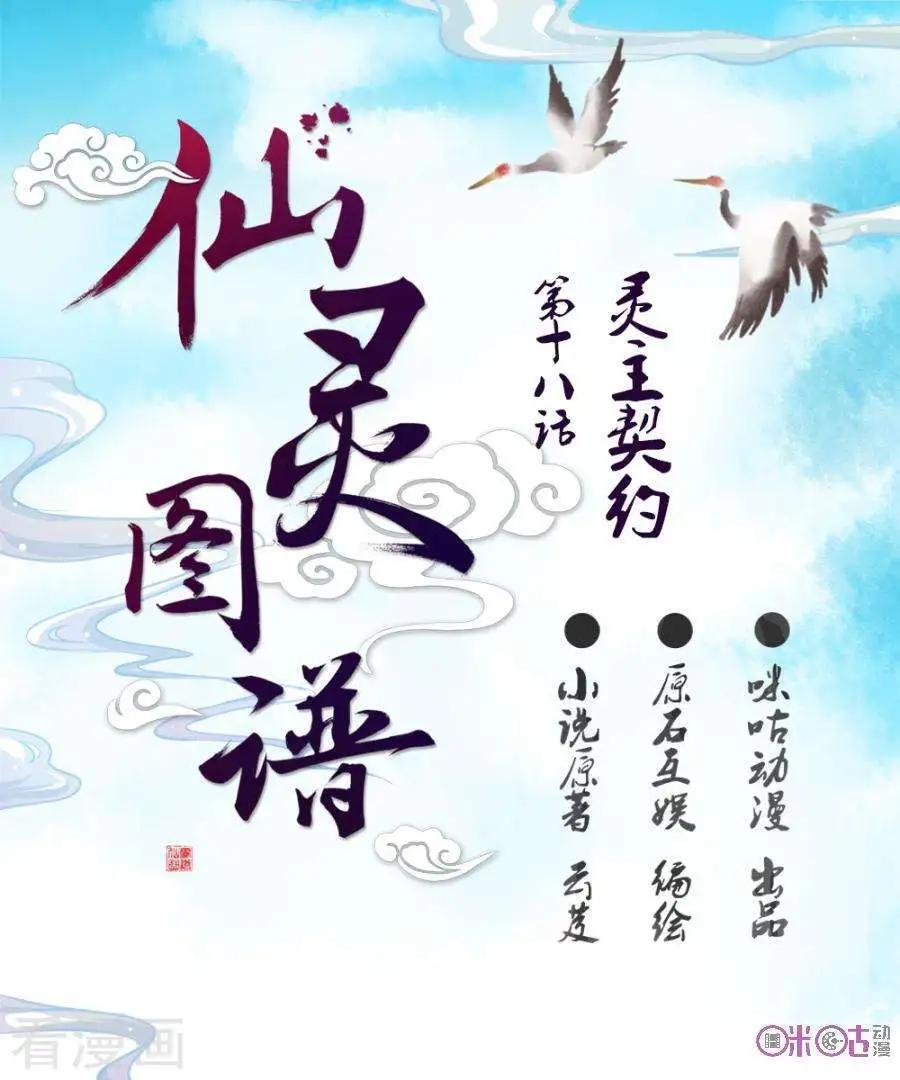 仙灵图谱
灵主契约
第十八话
咪咕动漫 出品
原石互娱 编绘
小说原著 云芨
看漫画
咪咕动漫